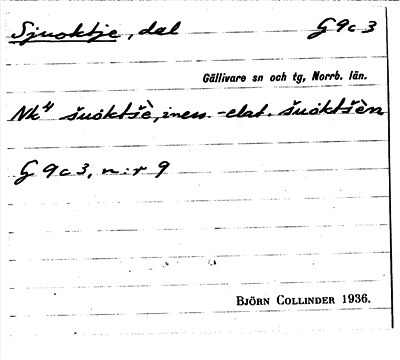 Sjuoktje, dal G 9c3
Gällivare sn och tg, Norrb. län.
Nk⁴ šuòktšè, iness.-elat. šuòktšèn
G 9c3, n:r 9
BJÖRN COLLINDER 1936.